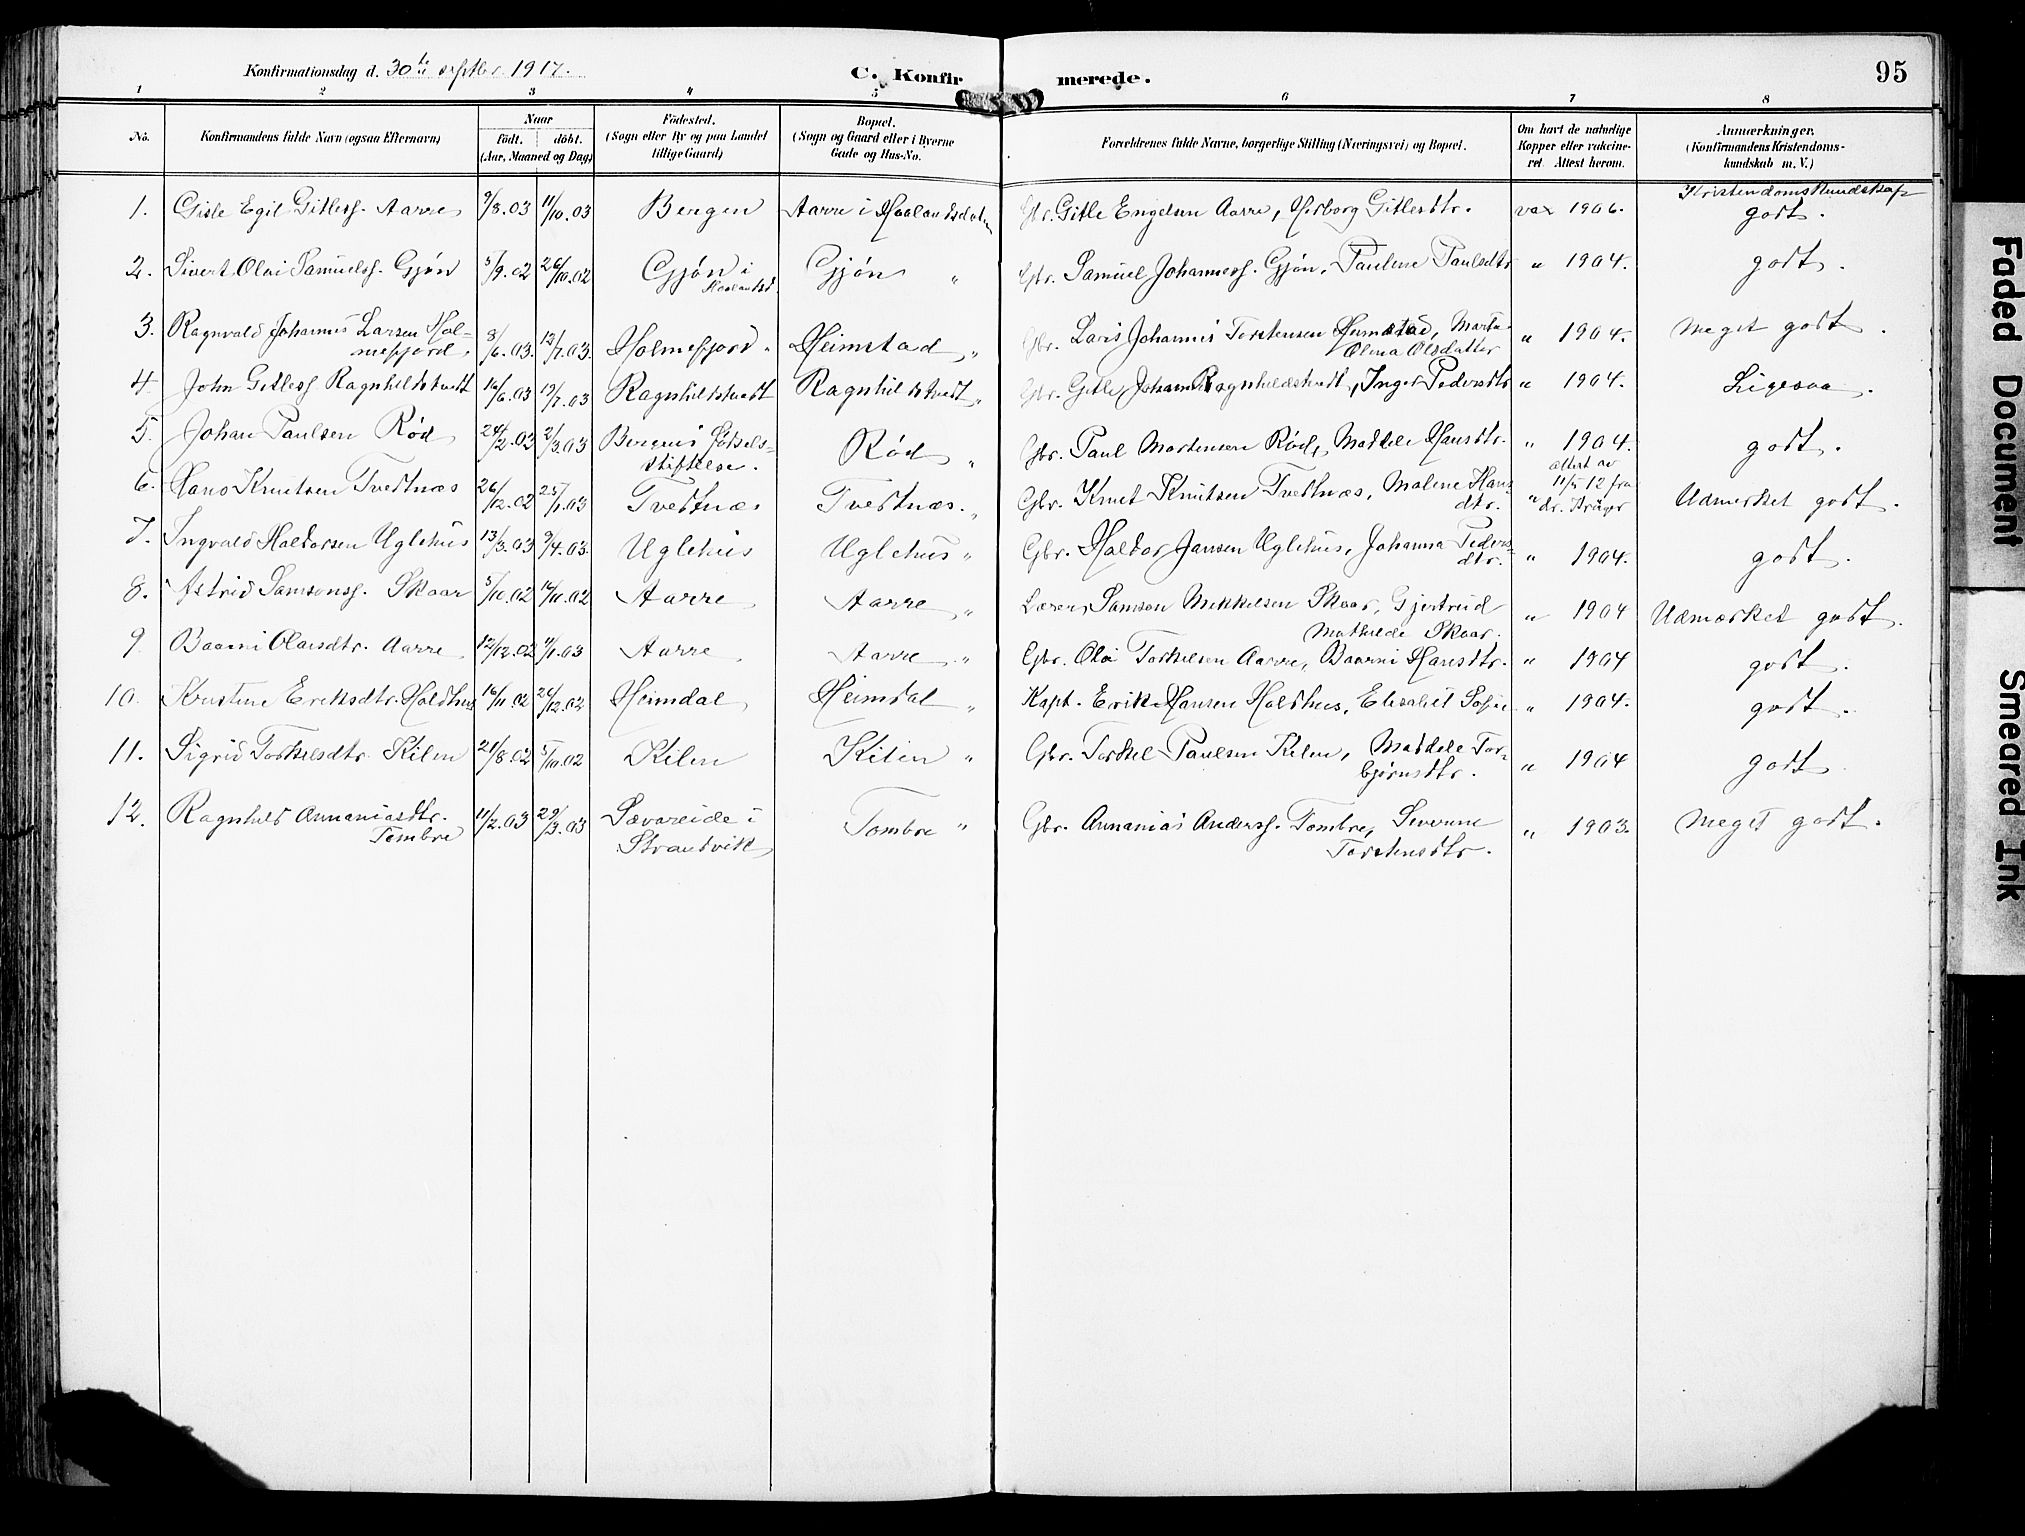 Konfirmationsdag d. 30te septbr. 1917.
C. Konfirmerede.
95
1 2 3 4 5 6 7 8
No.
Konfirmandens fulde Navn (ogsaa Efternavn)
Naar
født. døbt.
(Aar, Maaned og Dag)
Fødested.
(Sogn eller By og paa Landet
tillige Gaard)
Bopæl.
(Sogn og Gaard eller i Byerne
Gade og Hus-No.
Forældrenes fulde Navne, borgerlige Stilling (Næringsvei) og Bopæl.
Om havt de naturlige
Kopper eller vakcine-
ret Attest herom.
Anmærkninger.
(Konfirmandens Kristendoms-
kundskab m. V.)
1. Gisle Egil Gitless. Aarre 9/8.03 11/10.03 Bergen Aarre i Haalandsdalen Gbr. Gitle Engelsen Aarre, Herborg Gitlesdtr. vax 1906. Kristendomskundskap
godt.
2. Sivert Olai Samuelss. Gjøn 5/9.02 26/10.02 Gjøn i Gjøn " Gbr. Samuel Johanness. Gjøn, Pauline Paulsdtr " 1904. godt.
Haalandsd.
3. Ragnvald Johannes Larsen Hol-
mefjord. 8/6.03. 12/7.03. Holmefjord. Heimstad " Gbr. Lars Johannes Torstensen Heimstad, Marta " 1904. Meget godt.
Olina Olsdatter
4. John Gitless Ragnhildstvedt 16/6.03 19/7.03 Ragnhildstvedt Ragnhildstvedt " Gbr. Gitle Johann Ragnhildstvedt, Inger Pedersdtr " 1904. Ligesaa.
5. Johan Paulsen Rød 24/2.03 2/3.03 Bergens Fødsels-
stiftelse. Rød " Gbr. Paul Mortensen Rød, Maddele Hansdtr. " 1904. godt.
6. Hans Knutsen Tvedtnæs 26/12.02 25/1.03 Tvedtnæs Tvedtnæs. " Gbr. Knut Knutsen Tvedtnæs, Malene Hans
dtr. " attest av
11/5 12 fra
dr. Udmerket godt.
7. Ingvald Haldorsen Uglehus 13/3.03 9/4.03. Uglehus Uglehus " Gbr. Haldor Jansen Uglehus, Johanna Peders-
dtr. " 1904. godt.
8. Astrid Samsonss. Skaar 5/10.02 16/11.02 Aarre Aarre " Lærer Samson Mikkelsen Skaar, Gjertrud " 1904 Udmærket godt.
Mathilde Skaar.
9. Baarni Olaisdtr. Aarre 12/12.02 4/1.03 Aarre Aarre " Gbr. Olai Torkelsen Aarre, Baarni Hansdtr. " 1904 godt.
10. Kristine Eriksdtr. Holdhus 16/11.02 26/12.02 Heimdal Heimdal " Kapt. Erik Hansen Holdhus, Elisabet Sofie " 1904. godt.
11. Sigrid Torkelsdtr. Kilen 21/8.02 5/10.02 Kilen Kilen " Gbr. Torkel Paulsen Kilen, Maddele Tor-
bjørnsdtr. " 1904 godt.
12. Ragnhild Annaniasdtr.
Tombre 11/2.03 29/3.03 Sævareide i
Strandvik Tombre " Gbr. Annanias Anderss. Tombre, Severine
Torstensdtr. " 1903. Meget godt.
Faded Document
Smeared Ink